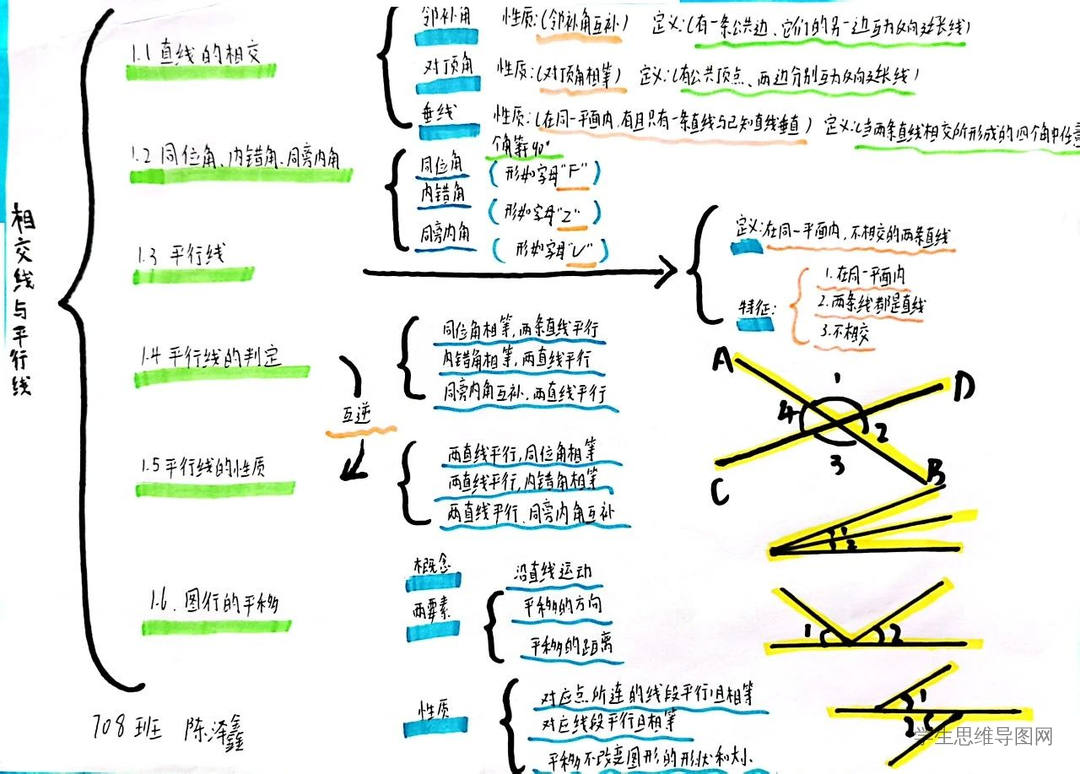 相交线与平行线
1.1 直线的相交
邻补角 性质:(邻补角互补) 定义:(有一条公共边、它们的另一边互为反向延长线)
对顶角 性质:(对顶角相等) 定义:(有公共顶点、两边分别互为反向延长线)
垂线 性质:(在同一平面内,有且只有一条直线与已知直线垂直) 定义:(当两条直线相交所形成的四个角中任意
一个角等90°
1.2 同位角、内错角、同旁内角
同位角 (形如字母"F")
内错角 (形如字母"Z")
同旁内角 (形如字母"U")
1.3 平行线
定义:在同一平面内,不相交的两条直线
特征:
1.在同一平面内
2.两条线都是直线
3.不相交
1.4 平行线的判定
同位角相等,两条直线平行
内错角相等,两直线平行
同旁内角互补,两直线平行
互逆
1.5 平行线的性质
两直线平行,同位角相等
两直线平行,内错角相等
两直线平行、同旁内角互补
1.6、图行的平移
概念 沿直线运动
两要素
平移的方向
平移的距离
性质
对应点所连的线段平行且相等
对应线段平行且相等
平移不改变图形的形状和大小
A
1
D
4
2
3
C
B
1
2
1 2
1
2
708班 陈泽鑫
学生思维导图网